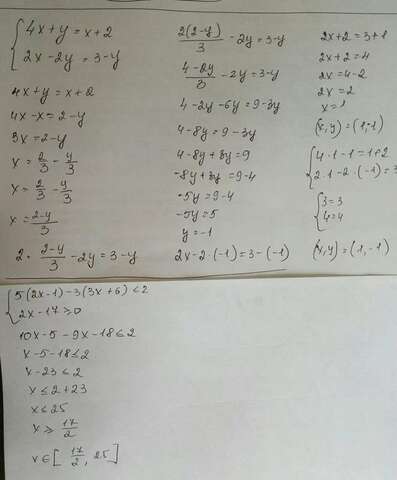 4x+y=x+2
2x-2y=3-y
4x+y=x+2
4x-x=2-y
3x=2-y
x=2/3-y/3
x=2/3-y/3
x=(2-y)/3
2·(2-y)/3-2y=3-y
2(2-y)/3-2y=3-y
(4-2y)/3-2y=3-y
4-2y-6y=9-3y
4-8y=9-3y
4-8y+3y=9
-8y+3y=9-4
-5y=9-4
-5y=5
y=-1
2x-2·(-1)=3-(-1)
2x+2=3+1
2x+2=4
2x=4-2
2x=2
x=1
(x,y)=(1,-1)
4·1-1=1+2
2·1-2·(-1)=3
3=3
4=4
(x,y)=(1,-1)
5(2x-1)-3(3x+6)≤2
2x-17≥0
10x-5-9x-18≤2
x-5-18≤2
x-23≤2
x≤2+23
x≤25
x≥17/2
x∈[17/2, 25]